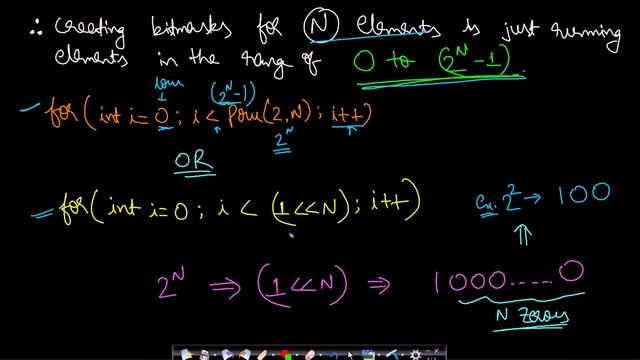 ∴ Creating bitmasks for N elements is just running
elements in the range of 0 to (2^N - 1).
↓
(2^N-1)
for( int i=0 ; i < Pow(2,N) ; i++)
2^N
OR
for( int i=0 ; i < (1<<N) ; i++)
Ex: 2^2 → 100
⇑
2^N ⇒ (1<<N) ⇒ 1000.....0
N zeros